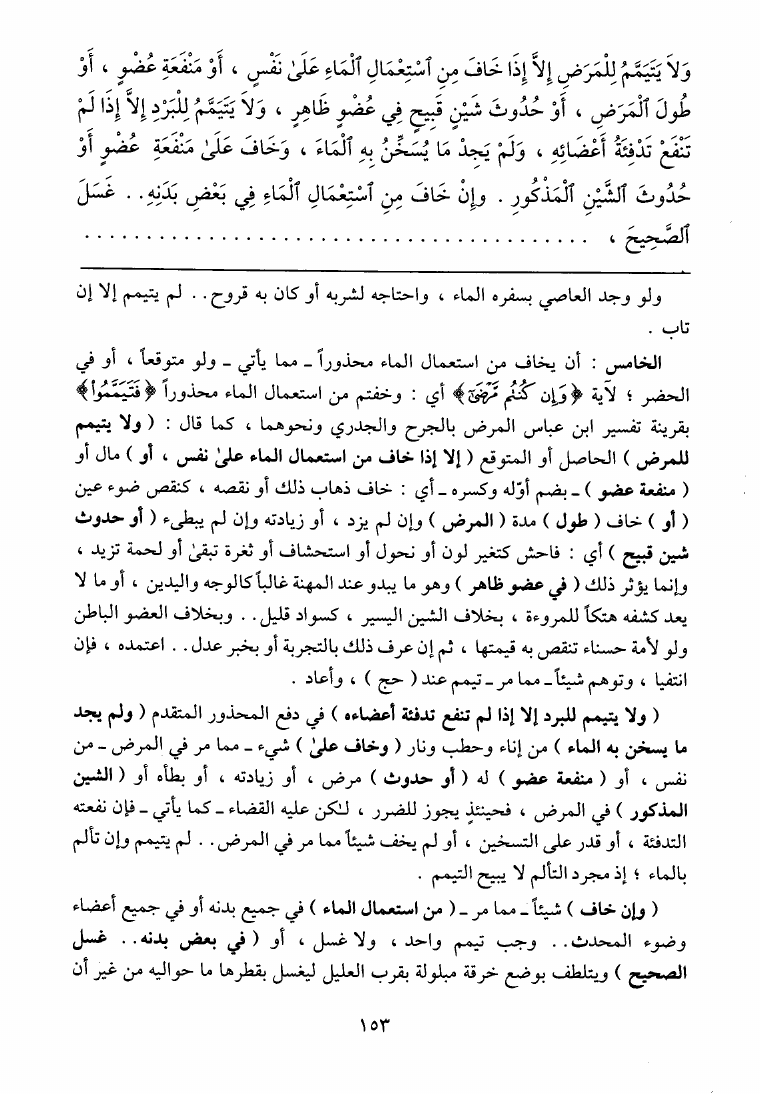 وَلاَ يَتَيَمَّمُ لِلْمَرَضِ إِلاَّ إِذَا خَافَ مِنِ ٱسْتِعْمَالِ ٱلْمَاءِ عَلَىٰ نَفْسٍ ، أَوْ مَنْفَعَةِ عُضْوٍ ، أَوْ
طُولَ ٱلْمَرَضِ ، أَوْ حُدُوثَ شَيْنٍ قَبِيحٍ فِي عُضْوٍ ظَاهِرٍ ، وَلاَ يَتَيَمَّمُ لِلْبَرْدِ إِلاَّ إِذَا لَمْ
تَنْفَعْ تَدْفِئَةُ أَعْضَائِهِ ، وَلَمْ يَجِدْ مَا يُسَخِّنُ بِهِ ٱلْمَاءَ ، وَخَافَ عَلَىٰ مَنْفَعَةِ عُضْوٍ أَوْ
حُدُوثَ ٱلشَّيْنِ ٱلْمَذْكُورِ . وَإِنْ خَافَ مِنِ ٱسْتِعْمَالِ ٱلْمَاءِ فِي بَعْضِ بَدَنِهِ . . غَسَلَ
ٱلصَّحِيحَ ، . . . . . . . . . . . . . . . . . . . . . . . . . . . . . . . . . . . . . . . .
ولو وجد العاصي بسفره الماء ، واحتاجه لشربه أو كان به قروح . . لم يتيمم إلا إن
تاب .
الخامس : أن يخاف من استعمال الماء محذوراً ـ مما يأتي ـ ولو متوقعاً ، أو في
الحضر ؛ لآية ﴿وَإِن كُنتُم مَّرْضَىٰٓ﴾ أي : وخفتم من استعمال الماء محذوراً ﴿فَتَيَمَّمُوا۟﴾
بقرينة تفسير ابن عباس المرض بالجرح والجدري ونحوهما ، كما قال : ( ولا يتيمم
للمرض ) الحاصل أو المتوقع ( إلا إذا خاف من استعمال الماء علىٰ نفس ، أو ) مال أو
( منفعة عضو ) ـ بضم أوّله وكسره ـ أي : خاف ذهاب ذلك أو نقصه ، كنقص ضوء عين
( أو ) خاف ( طول ) مدة ( المرض ) وإن لم يزد ، أو زيادته وإن لم يبطىء ( أو حدوث
شين قبيح ) أي : فاحش كتغير لون أو نحول أو استحشاف أو ثغرة تبقىٰ أو لحمة تزيد ،
وإنما يؤثر ذلك ( في عضو ظاهر ) وهو ما يبدو عند المهنة غالباً كالوجه واليدين ، أو ما لا
يعد كشفه هتكاً للمروءة ، بخلاف الشين اليسير ، كسواد قليل . . وبخلاف العضو الباطن
ولو لأمة حسناء تنقص به قيمتها ، ثم إن عرف ذلك بالتجربة أو بخبر عدل . . اعتمده ، فإن
انتفيا ، وتوهم شيئاً ـ مما مر ـ تيمم عند ( حج ) ، وأعاد .
( ولا يتيمم للبرد إلا إذا لم تنفع تدفئة أعضاءه ) في دفع المحذور المتقدم ( ولم يجد
ما يسخن به الماء ) من إناء وحطب ونار ( وخاف علىٰ ) شيء ـ مما مر في المرض ـ من
نفس ، أو ( منفعة عضو ) له ( أو حدوث ) مرض ، أو زيادته ، أو بطأه أو ( الشين
المذكور ) في المرض ، فحينئذٍ يجوز للضرر ، لـٰكن عليه القضاء ـ كما يأتي ـ فإن نفعته
التدفئة ، أو قدر على التسخين ، أو لم يخف شيئاً مما مر في المرض . . لم يتيمم وإن تألم
بالماء ؛ إذ مجرد التألم لا يبيح التيمم .
( وإن خاف ) شيئاً ـ مما مر ـ ( من استعمال الماء ) في جميع بدنه أو في جميع أعضاء
وضوء المحدث . . وجب تيمم واحد ، ولا غسل ، أو ( في بعض بدنه . . غسل
الصحيح ) ويتلطف بوضع خرقة مبلولة بقرب العليل ليغسل بقطرها ما حواليه من غير أن
١٥٣